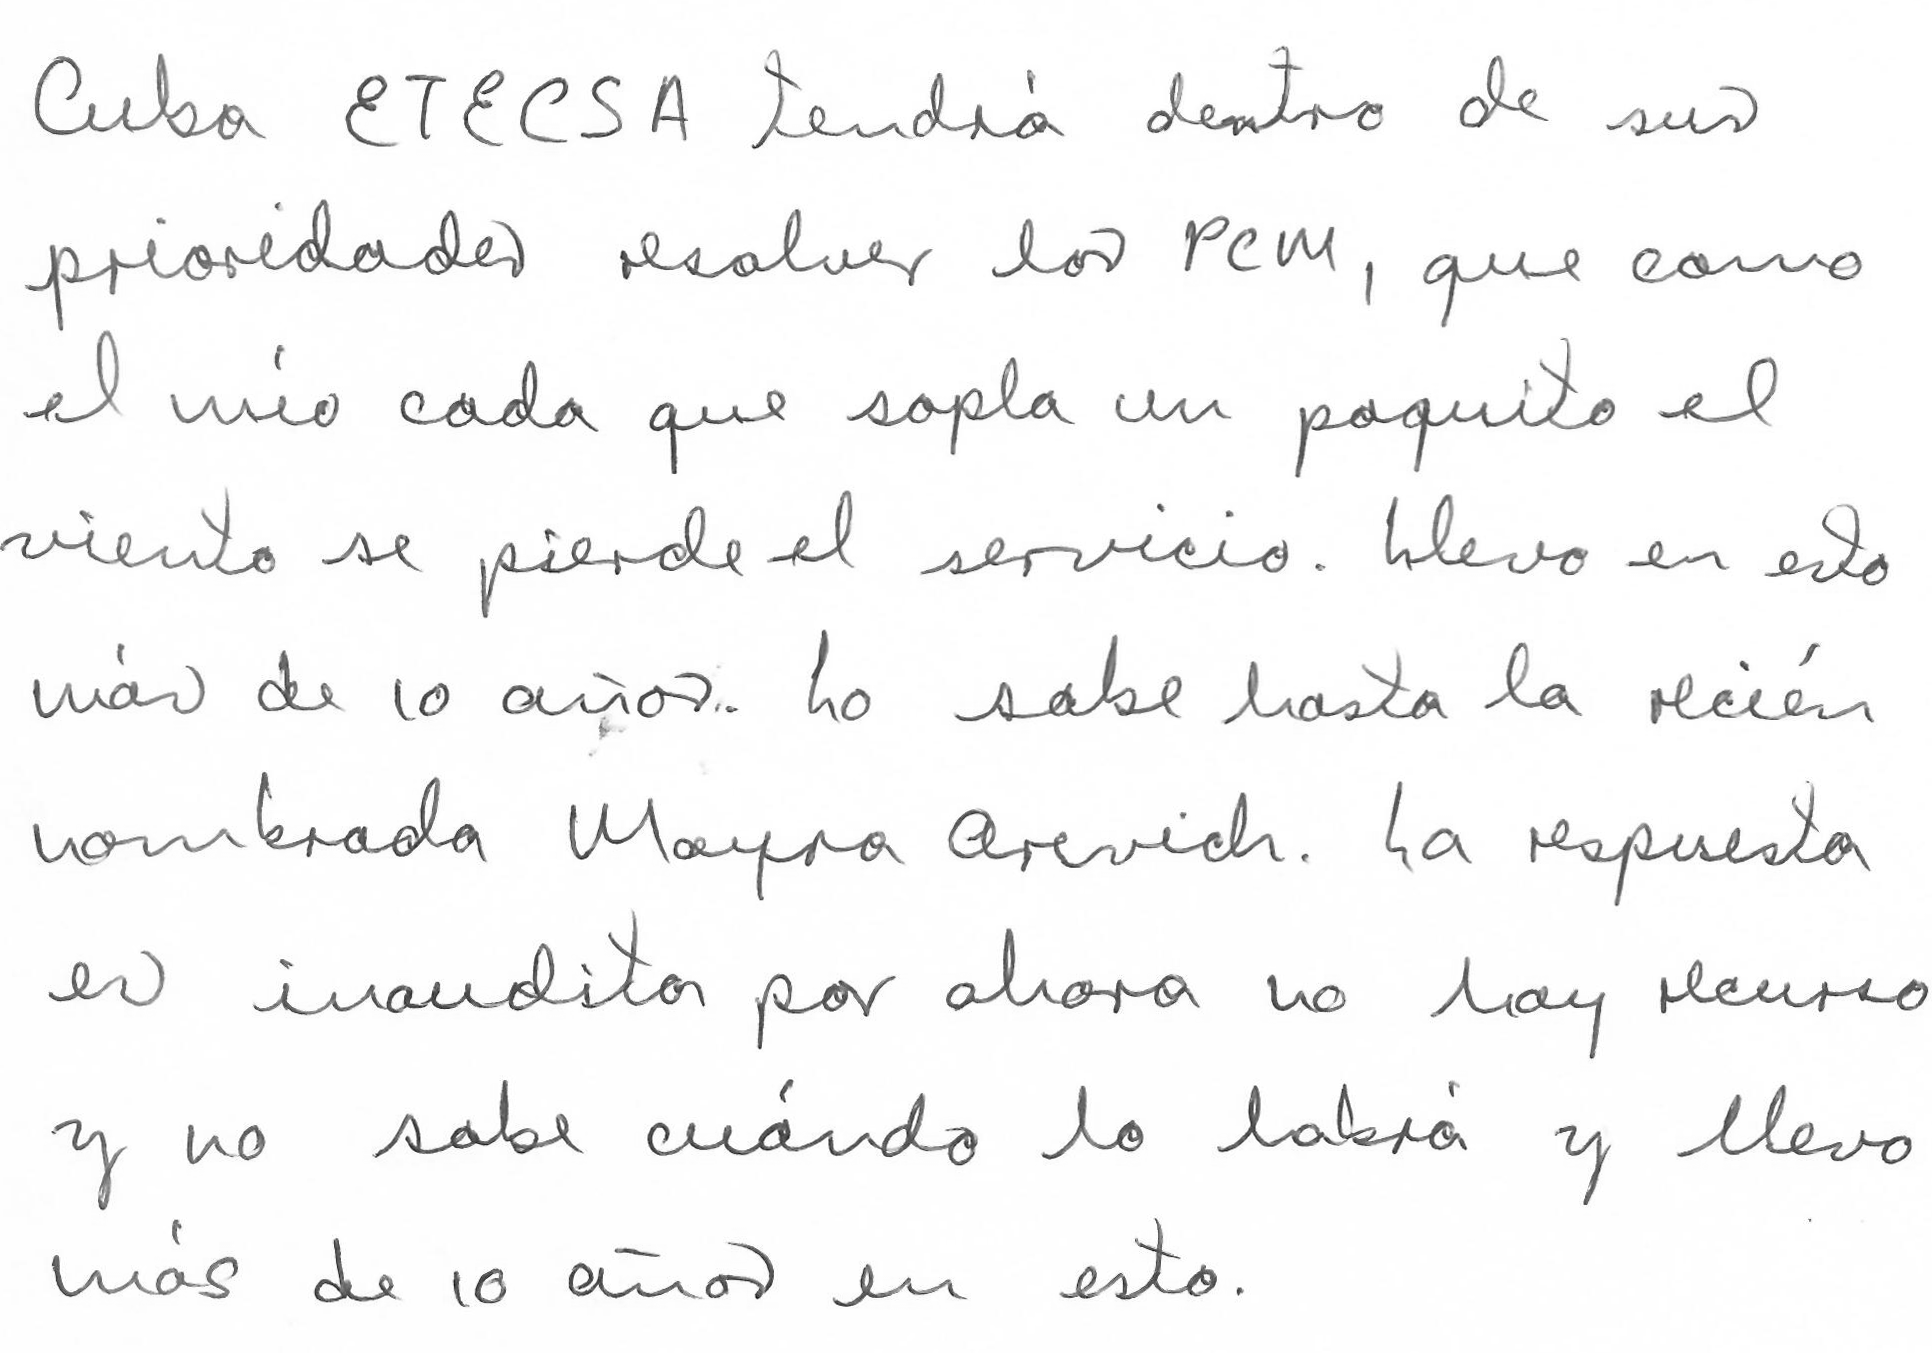 Cuba ETECSA tendrá dentro de sus
prioridades resolver los PCM, que como
el mío cada que sopla un poquito el
viento se pierde el servicio. Llevo en esto
más de 10 años. Lo sabe hasta la recién
nombrada Mayra Arevich. La respuesta
es inaudita por ahora no hay recurso
y no sabe cuándo lo habrá y llevo
más de 10 años en esto.